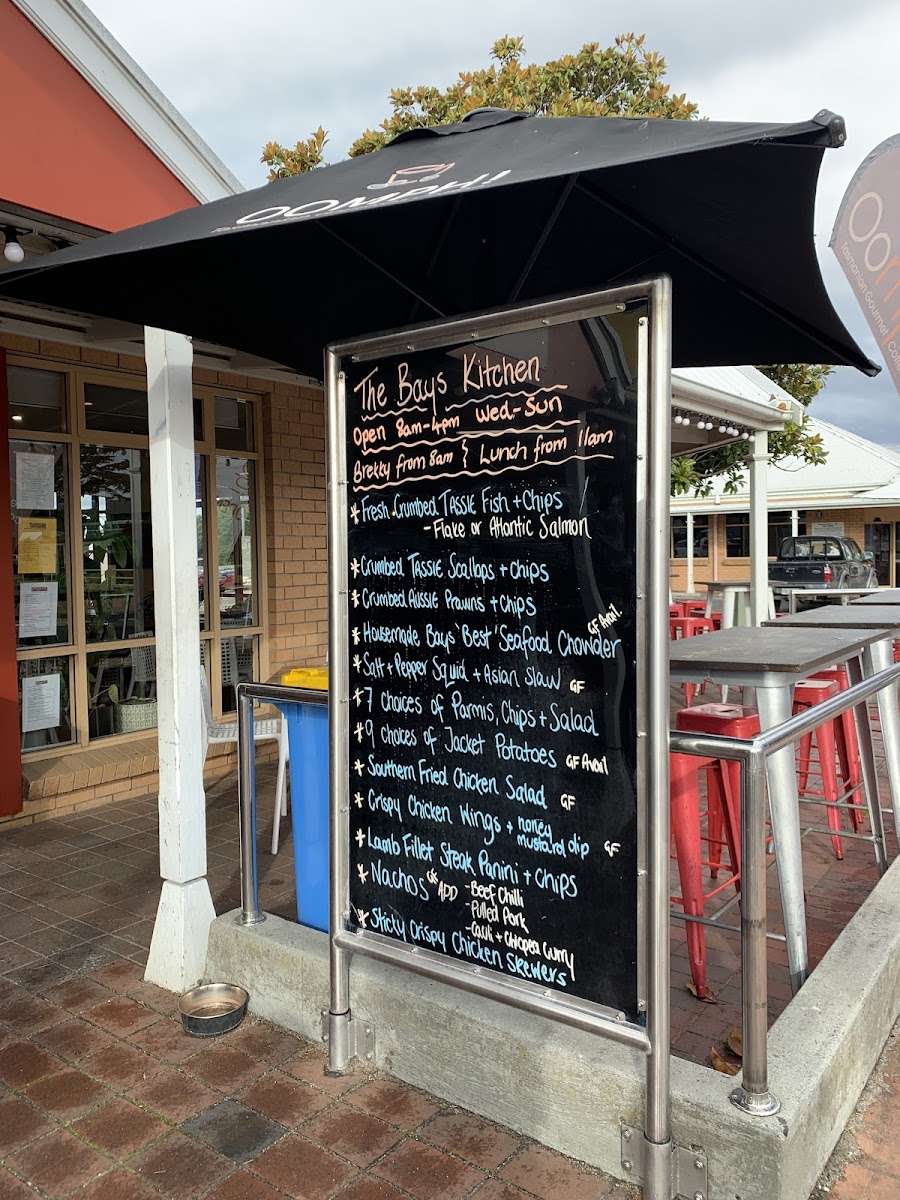 OOMPH!
Oom
Tasmanian Gourmet Coffe
The Bays Kitchen
Open 8am-4pm Wed-Sun
Brekky from 8am & Lunch from 11am
* Fresh Crumbed TASSIE Fish + Chips
- Flake or Atlantic Salmon
* Crumbed TASSIE Scallops + chips
* Crumbed Aussie Prawns + Chips
* Housemade Bays 'Best' Seafood Chowder GF Avail.
* Salt + Pepper Squid + Asian Slaw GF
* 7 choices of Parmis, Chips + Salad
* 9 choices of Jacket Potatoes GF Avail
* Southern Fried Chicken Salad GF
* Crispy Chicken Wings + honey mustard dip GF
* Lamb Fillet Steak Panini + Chips
* Nachos GF ADD - Beef Chilli
- Pulled Pork
- Cauli + Chicpea Curry
* Sticky Crispy Chicken Skewers